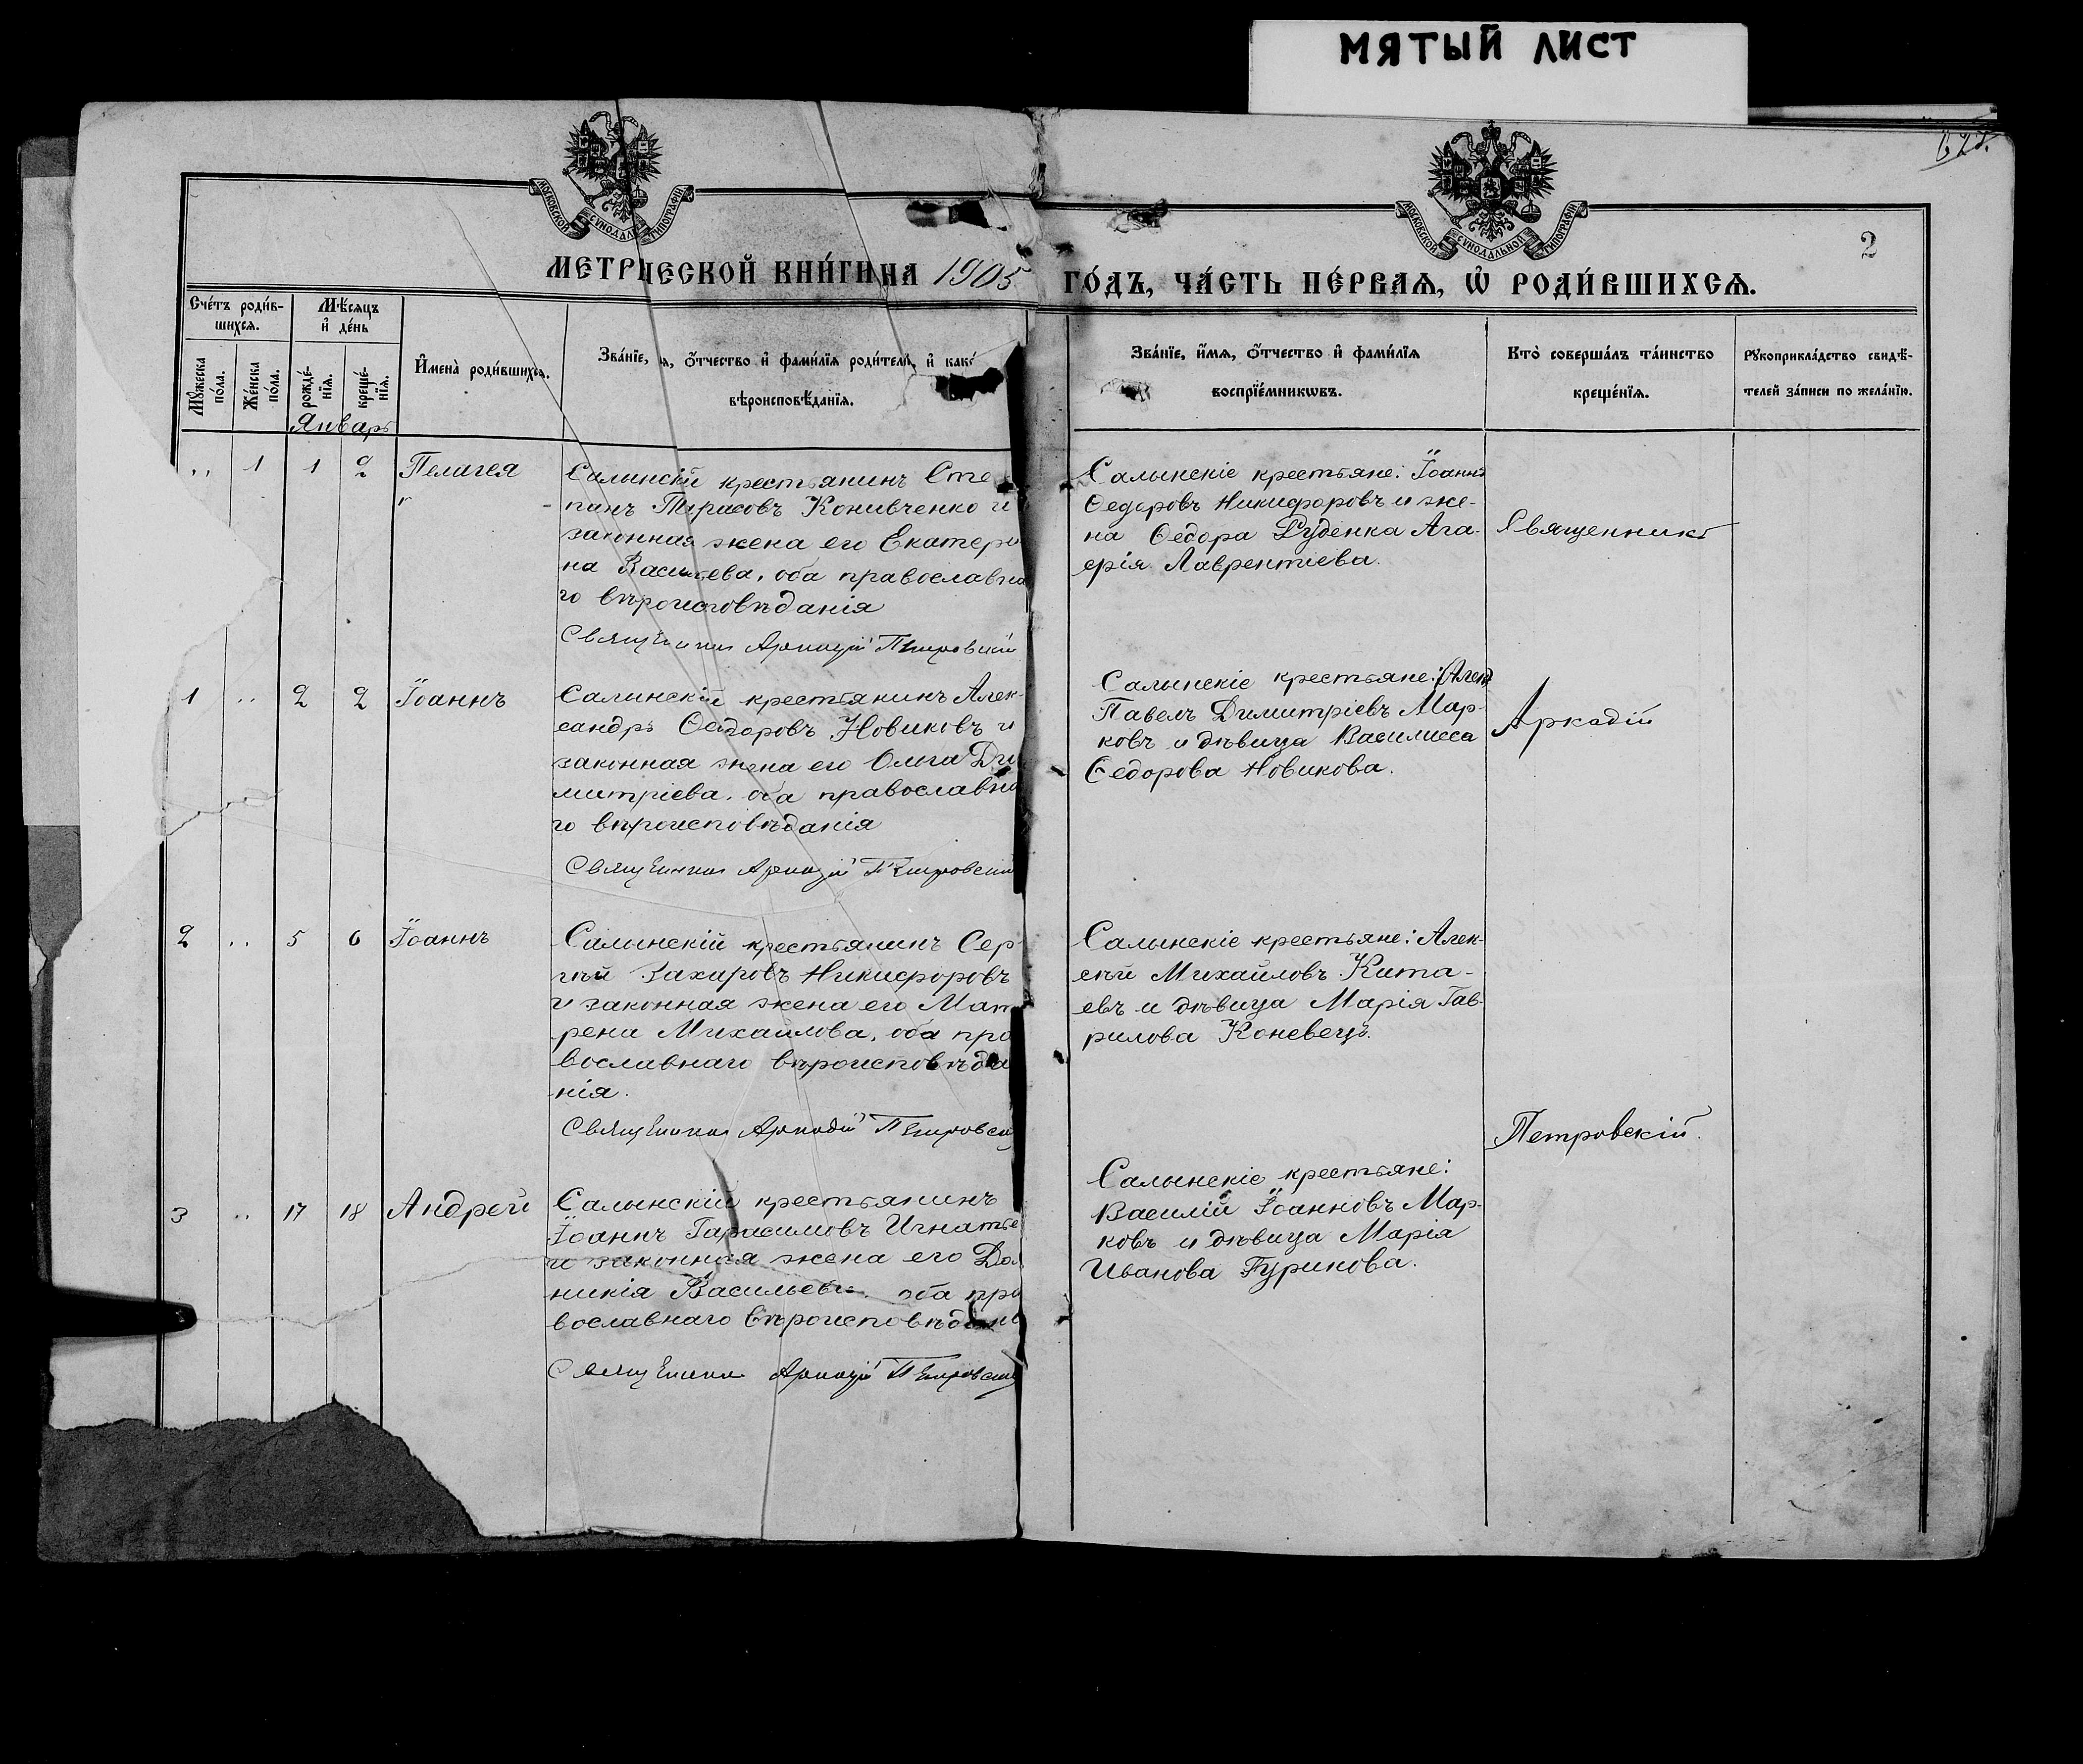 МЯТЫЙ ЛИСТ
МОСКОВСКОЙ СУНОДАЛ ТИПОГРАФІИ
МОСКОВСКОЙ СУНОДАЛЬНОЙ ТИПОГРАФІИ
2
МЕТРИЧЕСКОЙ КНИ́ГИ НА 1905 ГО́ДЪ, ЧА́СТЬ ПЕ́РВАѦ, Ѡ҆ РОДИ́ВШИХСѦ.
Сче́тъ роди́в-
шихсѧ.
Мѣ́сяцъ
и҆ де́нь
Мꙋ́жеска
по́ла.
Же́нска
по́ла.
рожде́-
нїѧ.
креще́-
нїѧ.
Январь
И҆мена̀ роди́вшихсѧ.
Зва́нїе, ѧ, ѻ҆́тчество и҆ фами́лїѧ роди́телей, и҆ како́
вѣроисповѣ́данїѧ.
Зва́нїе, и҆́мѧ, ѻ҆́тчество и҆ фами́лїѧ
воспрїе́мникѡвъ.
Кто̀ соверша́лъ та́инство
креще́нїѧ.
Рꙋкоприкла́дство свидѣ́-
телей за́писи по жела́нїю.
.. 1 1 2 Пелагея
Салынскій крестьянинъ Сте-
панъ Тарасовъ Конивченко и
законная жена его Екатери
на Васильева, оба православна
го вѣроисповѣданія
Священник Аркадій Петровскій
Салынскіе крестьяне: Іоаннъ
Ѳедоровъ Никифоровъ и же-
на Ѳедора Руденка Ага-
ерія Лаврентіева.
Священникъ
1 .. 2 2 Іоаннъ
Салынскій крестьянинъ Алек-
сандръ Ѳедоровъ Новиковъ и
законная жена его Ольга Ди
митріева, оба православна
го вѣроисповѣданія
Священник Аркадій Петровскій
Салынскіе крестьяне:
Павелъ Димитріевъ Мар-
ковъ и дѣвица Василисса
Ѳедорова Новикова.
Аркадій
2 .. 5 6 Іоаннъ
Салынскій крестьянинъ Сер
гѣй Захаровъ Никифоровъ
и законная жена его Мат
рена Михаилова, оба пра
вославнаго вѣроисповѣда
нія.
Священник Аркадій Петровскій
Салынскіе крестьяне: Алек-
сѣй Михайловъ Кита-
евъ и дѣвица Марія Гав-
рилова Коневецъ.
Петровскій.
3 .. 17 18 Андрей
Салынскій крестьянинъ
Іоаннъ Гарасимовъ Игнатье
и законная жена его До
никія Васильева, оба пра
вославнаго вѣроисповѣдані
Священник Аркадій Петровскій
Салынскіе крестьяне:
Василій Іоанновъ Мар-
ковъ и дѣвица Марія
Иванова Гурикова.